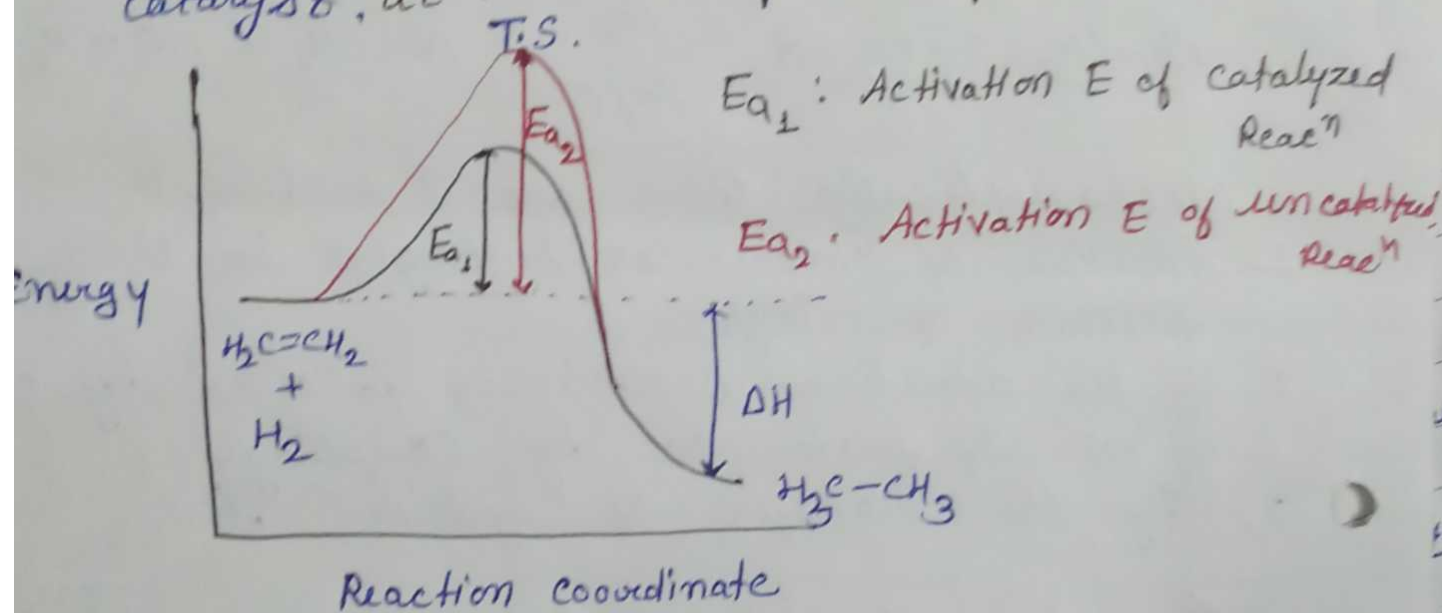 T.S.
Ea₁ : Activation E of Catalyzed
Reacⁿ
Ea₂
Ea₂ . Activation E of uncatalyzed
Reacⁿ
Ea₁
Energy
H₂C=CH₂
+
H₂
ΔH
H₃C-CH₃
Reaction coordinate